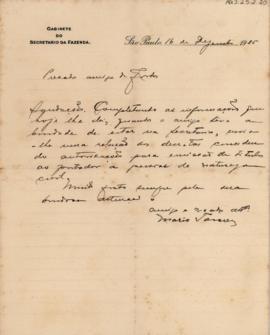 GABINETE
DO
SECRETARIO DA FAZENDA.
São Paulo, 16 de Dezembro 1925
Prezado amigo dr.
Saudações. Completando as informações que
hoje lhe dei, quando o amigo teve a
bondade de estar na Secretaria, envio-
lhe uma relação dos decretos conceden-
do autorização para emissão de titulos
ao portador a pessoas de natureza
civil.
Muito grato sempre pela sua
amigo e
Mario Tavares